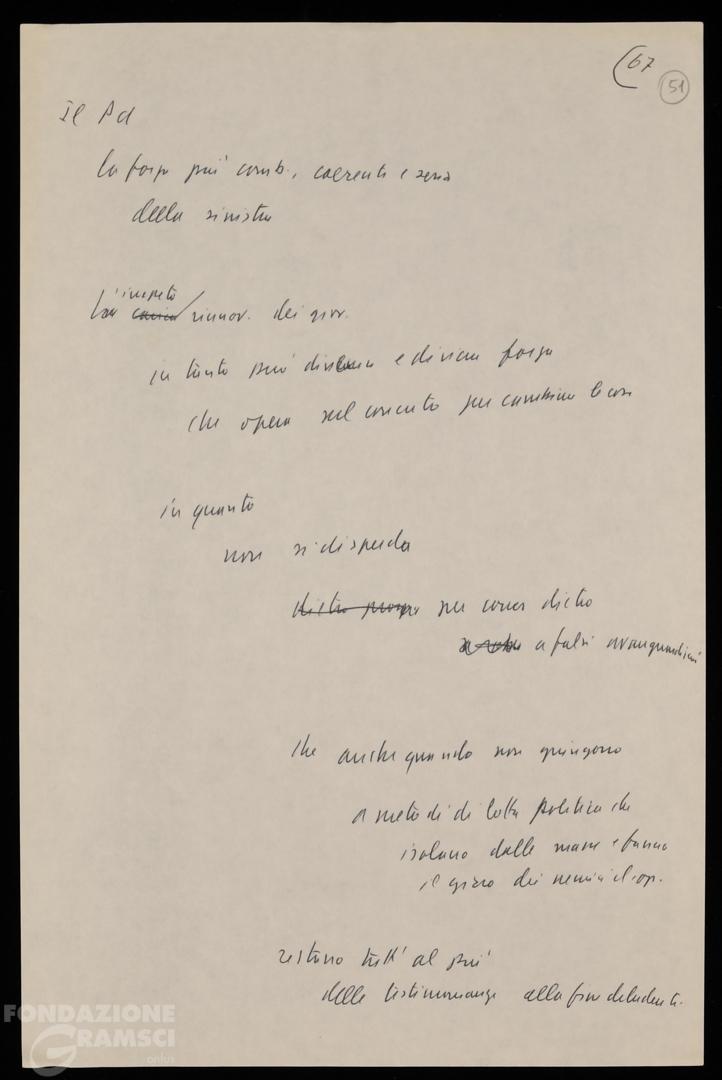 67
51
Il Pci
la forza più comb., coerente e seria
della sinistra
L'impeto rinnov. dei giov.
in tanto può divenire e diviene forza
che opera nel concreto per cambiare le cose
in quanto
non si disperda
per correr dietro
a falsi avanguardismi
che anche quando non giungono
a metodi di lotta politica che
isolano dalle masse e fanno
il gioco dei nemici di op.
restano tutt'al più
delle testimonianze alla fine deludenti.
FONDAZIONE
GRAMSCI
onlus